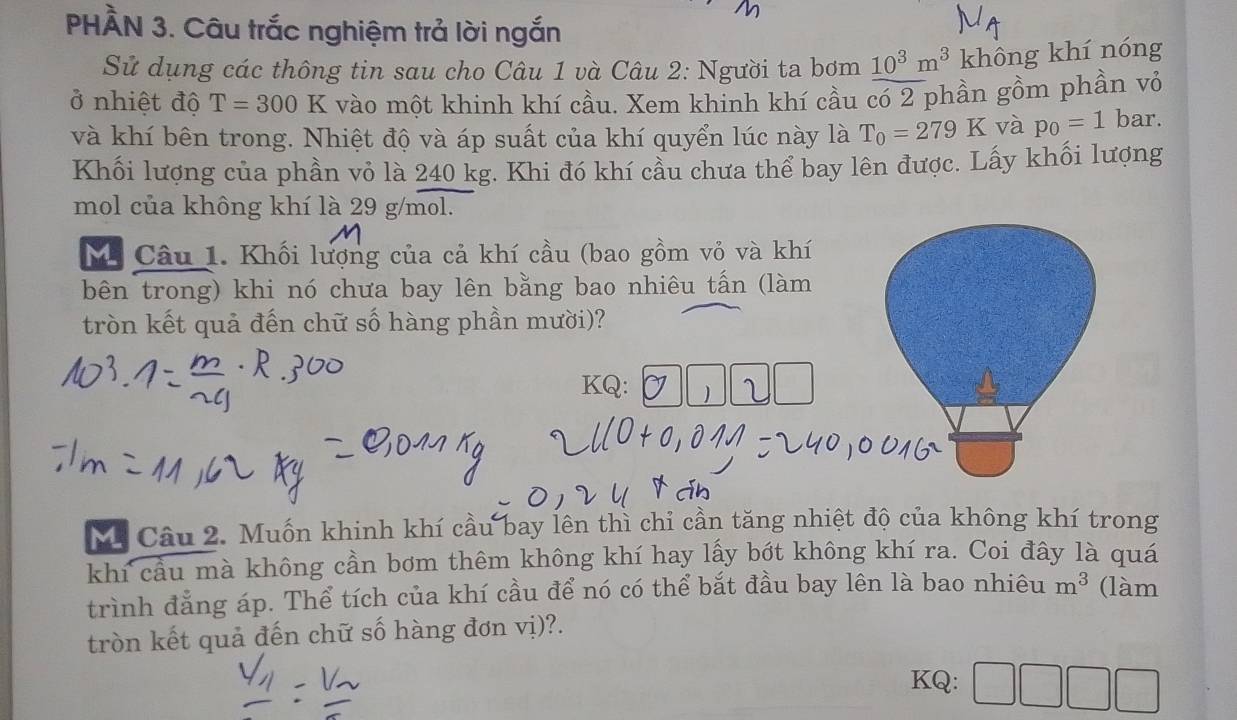 n
N_A
PHẦN 3. Câu trắc nghiệm trả lời ngắn
Sử dụng các thông tin sau cho Câu 1 và Câu 2: Người ta bơm 10³ m³ không khí nóng
ở nhiệt độ T = 300 K vào một khinh khí cầu. Xem khinh khí cầu có 2 phần gồm phần vỏ
và khí bên trong. Nhiệt độ và áp suất của khí quyển lúc này là T₀ = 279 K và p₀ = 1 bar.
Khối lượng của phần vỏ là 240 kg. Khi đó khí cầu chưa thể bay lên được. Lấy khối lượng
mol của không khí là 29 g/mol.
M
M Câu 1. Khối lượng của cả khí cầu (bao gồm vỏ và khí
bên trong) khi nó chưa bay lên bằng bao nhiêu tấn (làm
tròn kết quả đến chữ số hàng phần mười)?
10³.1 = m/29 . R.300
KQ: 0 , 2
=) m = 11,62 kg = 0,011 kg 240 + 0,011 = 240,00162
= 0,24 tấn
M Câu 2. Muốn khinh khí cầu bay lên thì chỉ cần tăng nhiệt độ của không khí trong
khí cầu mà không cần bơm thêm không khí hay lấy bớt không khí ra. Coi đây là quá
trình đẳng áp. Thể tích của khí cầu để nó có thể bắt đầu bay lên là bao nhiêu m³ (làm
tròn kết quả đến chữ số hàng đơn vị)?.
V₁ = V₂
KQ: